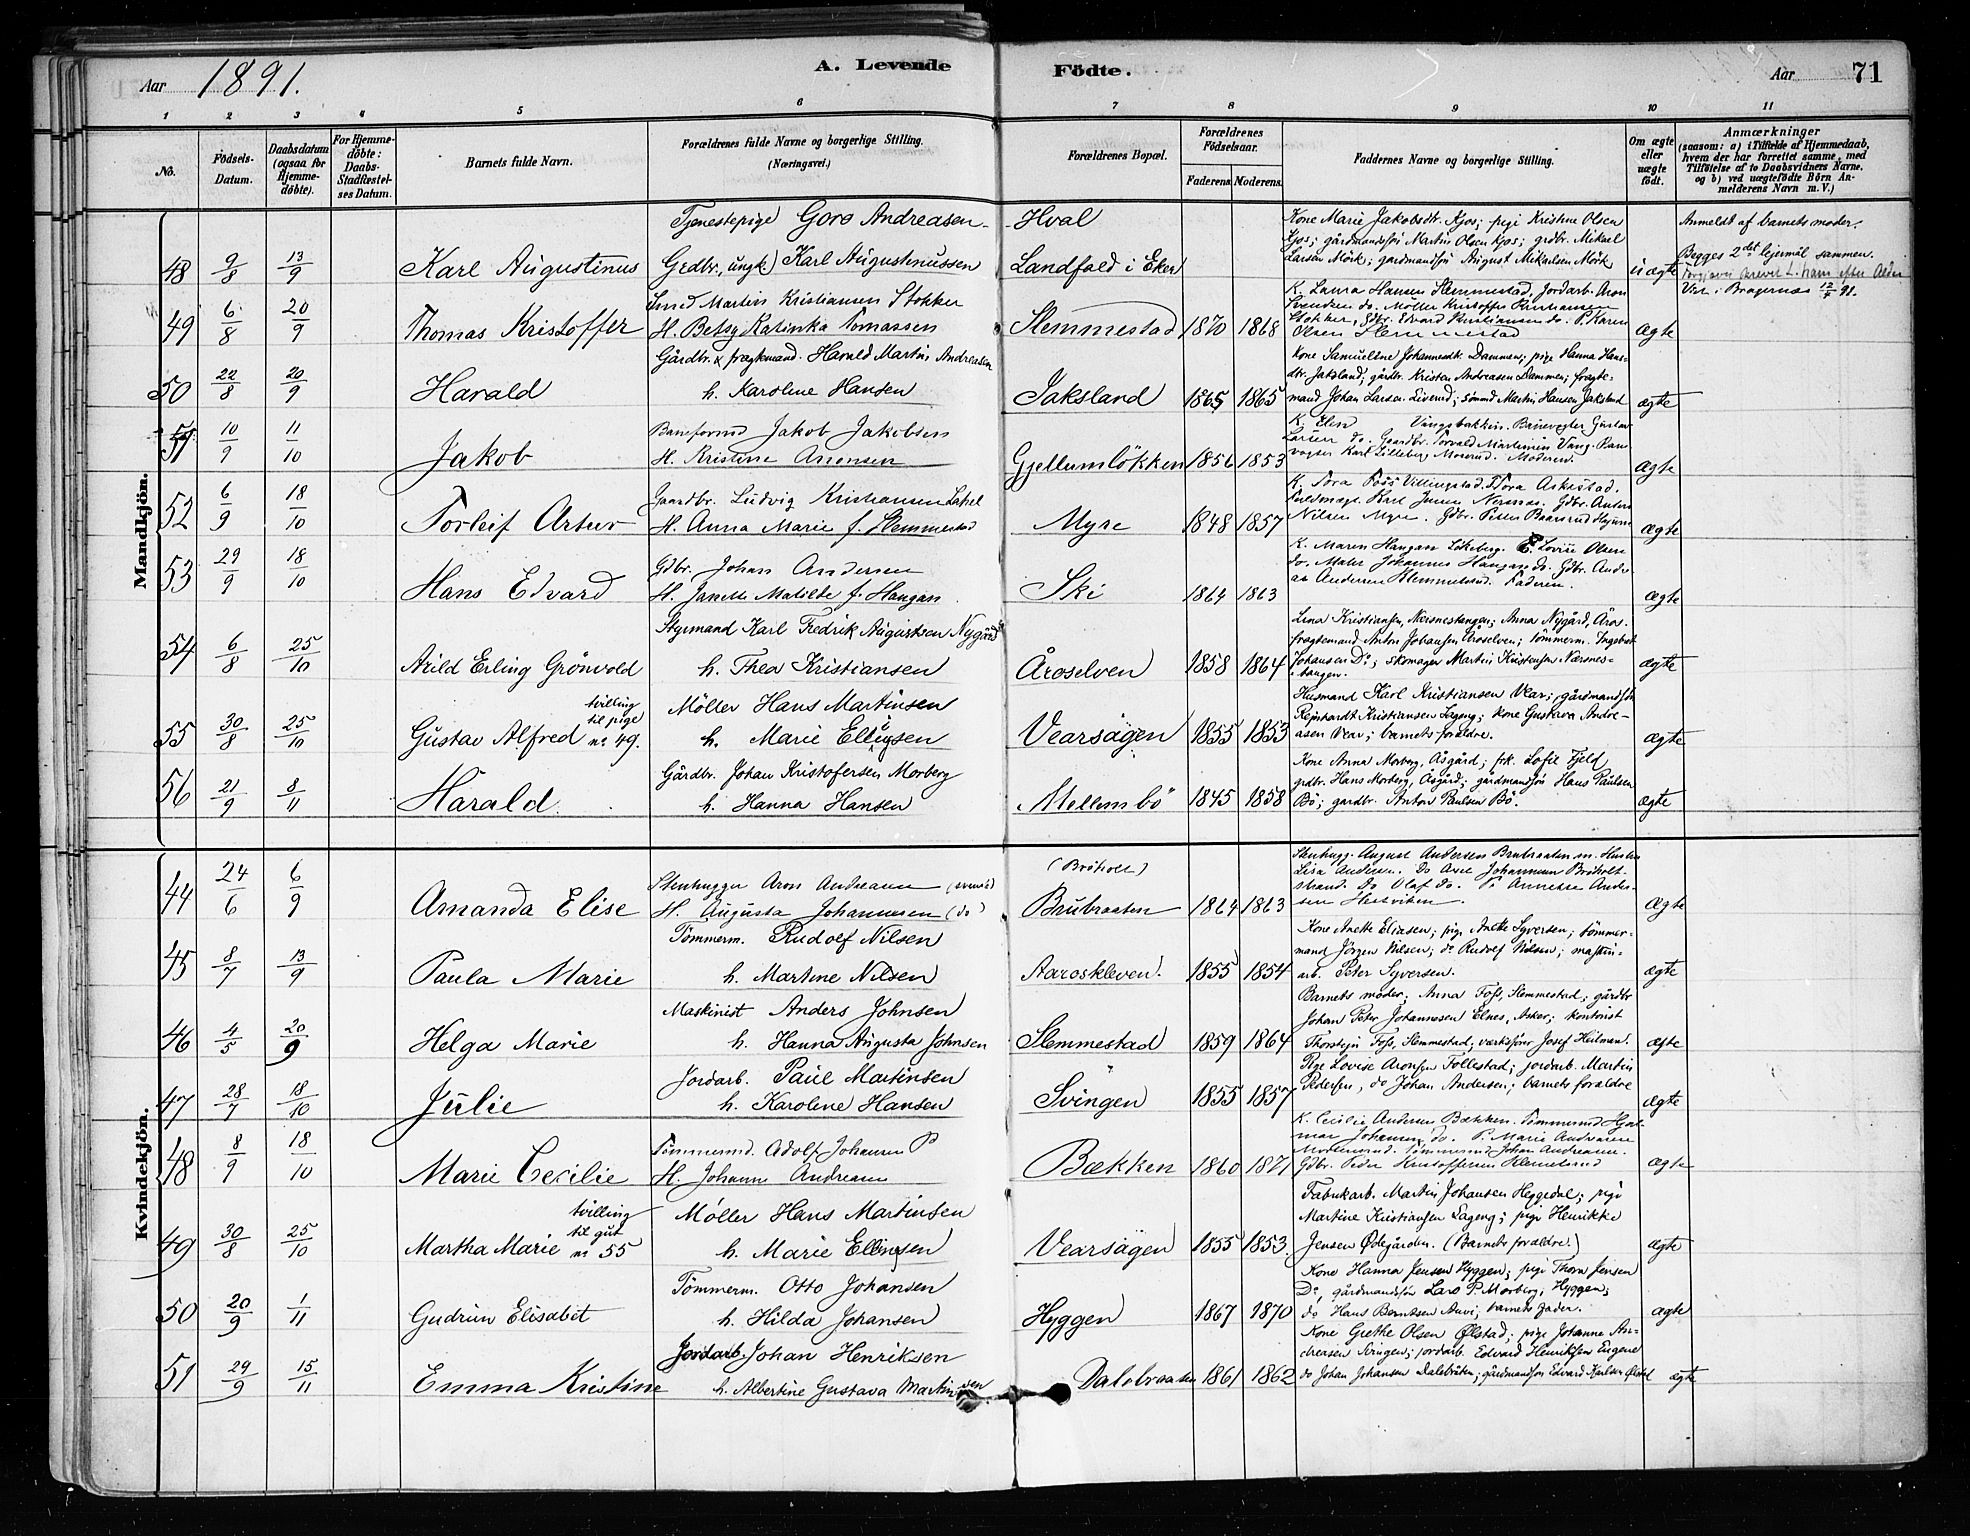 Aar 1891.
A. Levende
Födte.
Aar 71
1 2 3 4 5 6 7 8 9 10 11
No.
Födsels-Datum.
Daabsdatum (ogsaa for Hjemme-döbte).
For Hjemme-döbte: Daabs-Stadfæstel-ses Datum.
Barnets fulde Navn.
Forældrenes fulde Navne og borgerlige Stilling.
(Næringsvei.)
Forældrenes Bopæl.
Forældrenes Födselsaar.
Faderens. Moderens.
Faddernes Navne og borgerlige Stilling.
Om ægte eller uægte födt.
Anmærkninger
(saasom: a) i Tilfælde af Hjemmedaab,
hvem der har forrettet samme, med
Tilföielse af to Daabsvidners Navne.
og b) ved uægtefödte Börn An-
melderens Navn m. V.)
Mandkjön.
Tjenestepige Goro Andreasen Hval
Kone Marie Jakobsdt. Kjos; pige Kristine Olsen
Anmeldt af barnets moder.
Kjos; gårdmandssøn Martin Olsen Kjos; grdbr. Mikael
48 9/8 13/9 Karl Augustinus Grdbr., ungk. Karl Augustinussen Landfald i Eker
Larsen Mörk; gårdmandsøn August Mikaelsen Mörk uægte
Begges 2det lejermål sammen.
49 6/8 20/9 Thomas Kristoffer Smed Martin Kristiansen Stokker
H. Betsy Katinka Tomassen Slemmestad 1870 1868
K. Laura Hansen Slemmestad, Jordarb. Aron
Svendsen do. Møller Kristoffer Kristiansen
Stokker, Gdbr. Edvard Kristiansen do. P. Karen
Olsen Slemmestad ægte
50 22/8 20/9 Harald Gårdbr. & fragtemand. Harald Martin Andreasen
h. Karoline Hansen Jaksland 1865 1865
Kone Samueline Johannesdt. Dammen; pige Hanna Hans-
dtr. Jaksland; gårdbr. Kristen Andreasen Dammen; fragte-
mand Johan Larsen; sömd Martin Hansen Jaksland ægte
51 10/9 11/10 Jakob Baneformd Jakob Jakobsen
H. Kristine Aronsen Gjellumlökken 1856 1853
K. Elen Vangsbakken. Banevogter Gustav
Larsen do. Gaardbr. Torvald Martinius Vang. Ban
vogter Karl Lilleberg. Moderen. ægte
52 6/9 18/10 Torleif Artur Gaardbr. Ludvig Kristiansen
H. Anna Marie f. Slemmestad Myre 1848 1857
Nilsen Myre. Gdbr. Peter ægte
53 29/9 18/10 Hans Edvard Gdbr. Johan Andersen
H. Janette Matilde f. Haugan Ski 1864 1863
K. Maren Haugan Lökeberg. P. Lovise Olsen
do. Maler Johannes Haugan do. Gdbr. Andre-
as Andersen Klemmetsrud. Faderen. ægte
54 6/8 25/10 Arild Erling Grönvold Styrmand Karl Fredrik Augustsen Nygård
h. Thea Kristiansen Åroselven 1858 1864
Lina Kristiansen, Nærsnestangen; Anna Nygård, Åros.
fragtemand Anton Johansen Åroselven; tömmerm. Ingebret
Johansen Do; skomager Martin Kristensen Nærsnes-
tangen. ægte
55 30/8 25/10 Gustav Alfred tvilling til pige no 49. Möller Hans Martinsen
h. Marie Ellingsen Vearsågen 1855 1853
Husmand Karl Kristiansen Vear; gårdmandsön
Reinhardt Kristiansen Lageng; kone Gustava Andre-
asen Vear; barnets forældre. ægte
56 21/9 8/11 Harald. Gårdbr. Johan Kristofersen Morberg
h. Hanna Hansen Mellembö 1845 1858
Kone Anna Morberg, Åsgård; frk. Sofie Fjeld
grdbr. Hans Morberg, Åsgård; gårdmandsön Hans Paulsen
Bö; gardbr. Anton Paulsen Bö. ægte
Kvindekjön.
44 24/6 6/9 Amanda Elise Stenhugger Aron Andreasen (svensk)
H. Augusta Johannesen (do) (Bröholt) Brubraaten 1864 1863
Stenhugg. August Andersen Brubraaten m. Hustru
Lisa Andersen. Do Axel Johannesen Bröholt-
strand. do Olaf do. P. Annette Ander-
sen ægte
45 8/7 13/9 Paula Marie Tömmerm. Rudolf Nilsen
h. Martine Nilsen Aaroskleven. 1855 1854
Kone Anette Eliasen; pige Anette Syversen; tömmer-
mand Jörgen Nilsen; do Rudolf Nilsen; maskin-
arb. Peter Syversen. ægte
46 4/5 20/9 Helga Marie Maskinist Anders Johnsen
h. Hanna Augusta Johnsen Slemmestad 1859 1864
Barnets moder; Anna Foss, Slemmestad; gårdbr
Johan Peter Johannesen Elnes, Asker; kontorist
Thorstejn Foss, Slemmestad; værksförer Josef Heilman. ægte
47 28/7 18/10 Julie Jordarb. Paul Martinsen
h. Karoline Hansen Svingen 1855 1857
Pige Lovise Aronsen Follestad; jordarb. Martin
Pedersen, do Johan Andersen; barnets forældre ægte
48 8/9 18/10 Marie Cecilie Tömmermd. Adolf Johansen
H. Johanne Andreasen Bækken 1860 1871
K. Cecilie Andersen Bækken. Tömmermd Hjal-
mar Johansen do. P. Marie Andreasen
Tömmermd Johan Andreasen.
Gdbr. Peder Kristoffersen Klemetsrud ægte
49 30/8 25/10 Martha Marie tvilling til gut no 55 Möller Hans Martinsen
h. Marie Ellingsen Vearsågen 1855 1853.
Fabrikarb. Martin Johansen Heggedal; pige
Martine Kristiansen Lageng; pige Henrikke
Jensen Ødegården. (Barnets forældre.) ægte
50 20/9 1/11 Gudrun Elisabet Tömmerm. Otto Johansen
h. Hilda Johansen Hyggen 1867 1870
Kone Hanna Jensen Hyggen; pige Thora Jensen
Do, gårdmandsön Lars P. Morberg, Hyggen;
do Hans Berntsen; barnets fader. ægte
51 29/9 15/11 Emma Kristine Jordarb. Johan Henriksen
h. Albertine Gustava Martinsen Dalebraaten 1861 1862
Kone Grethe Olsen Ølstad; pige Johanne An-
dreasen Ringen; jordarb. Edvard Henriksen Eugene
do Johan Johansen Dalebråten; gårdmandsön Edvard Karlsen Ølstad ægte